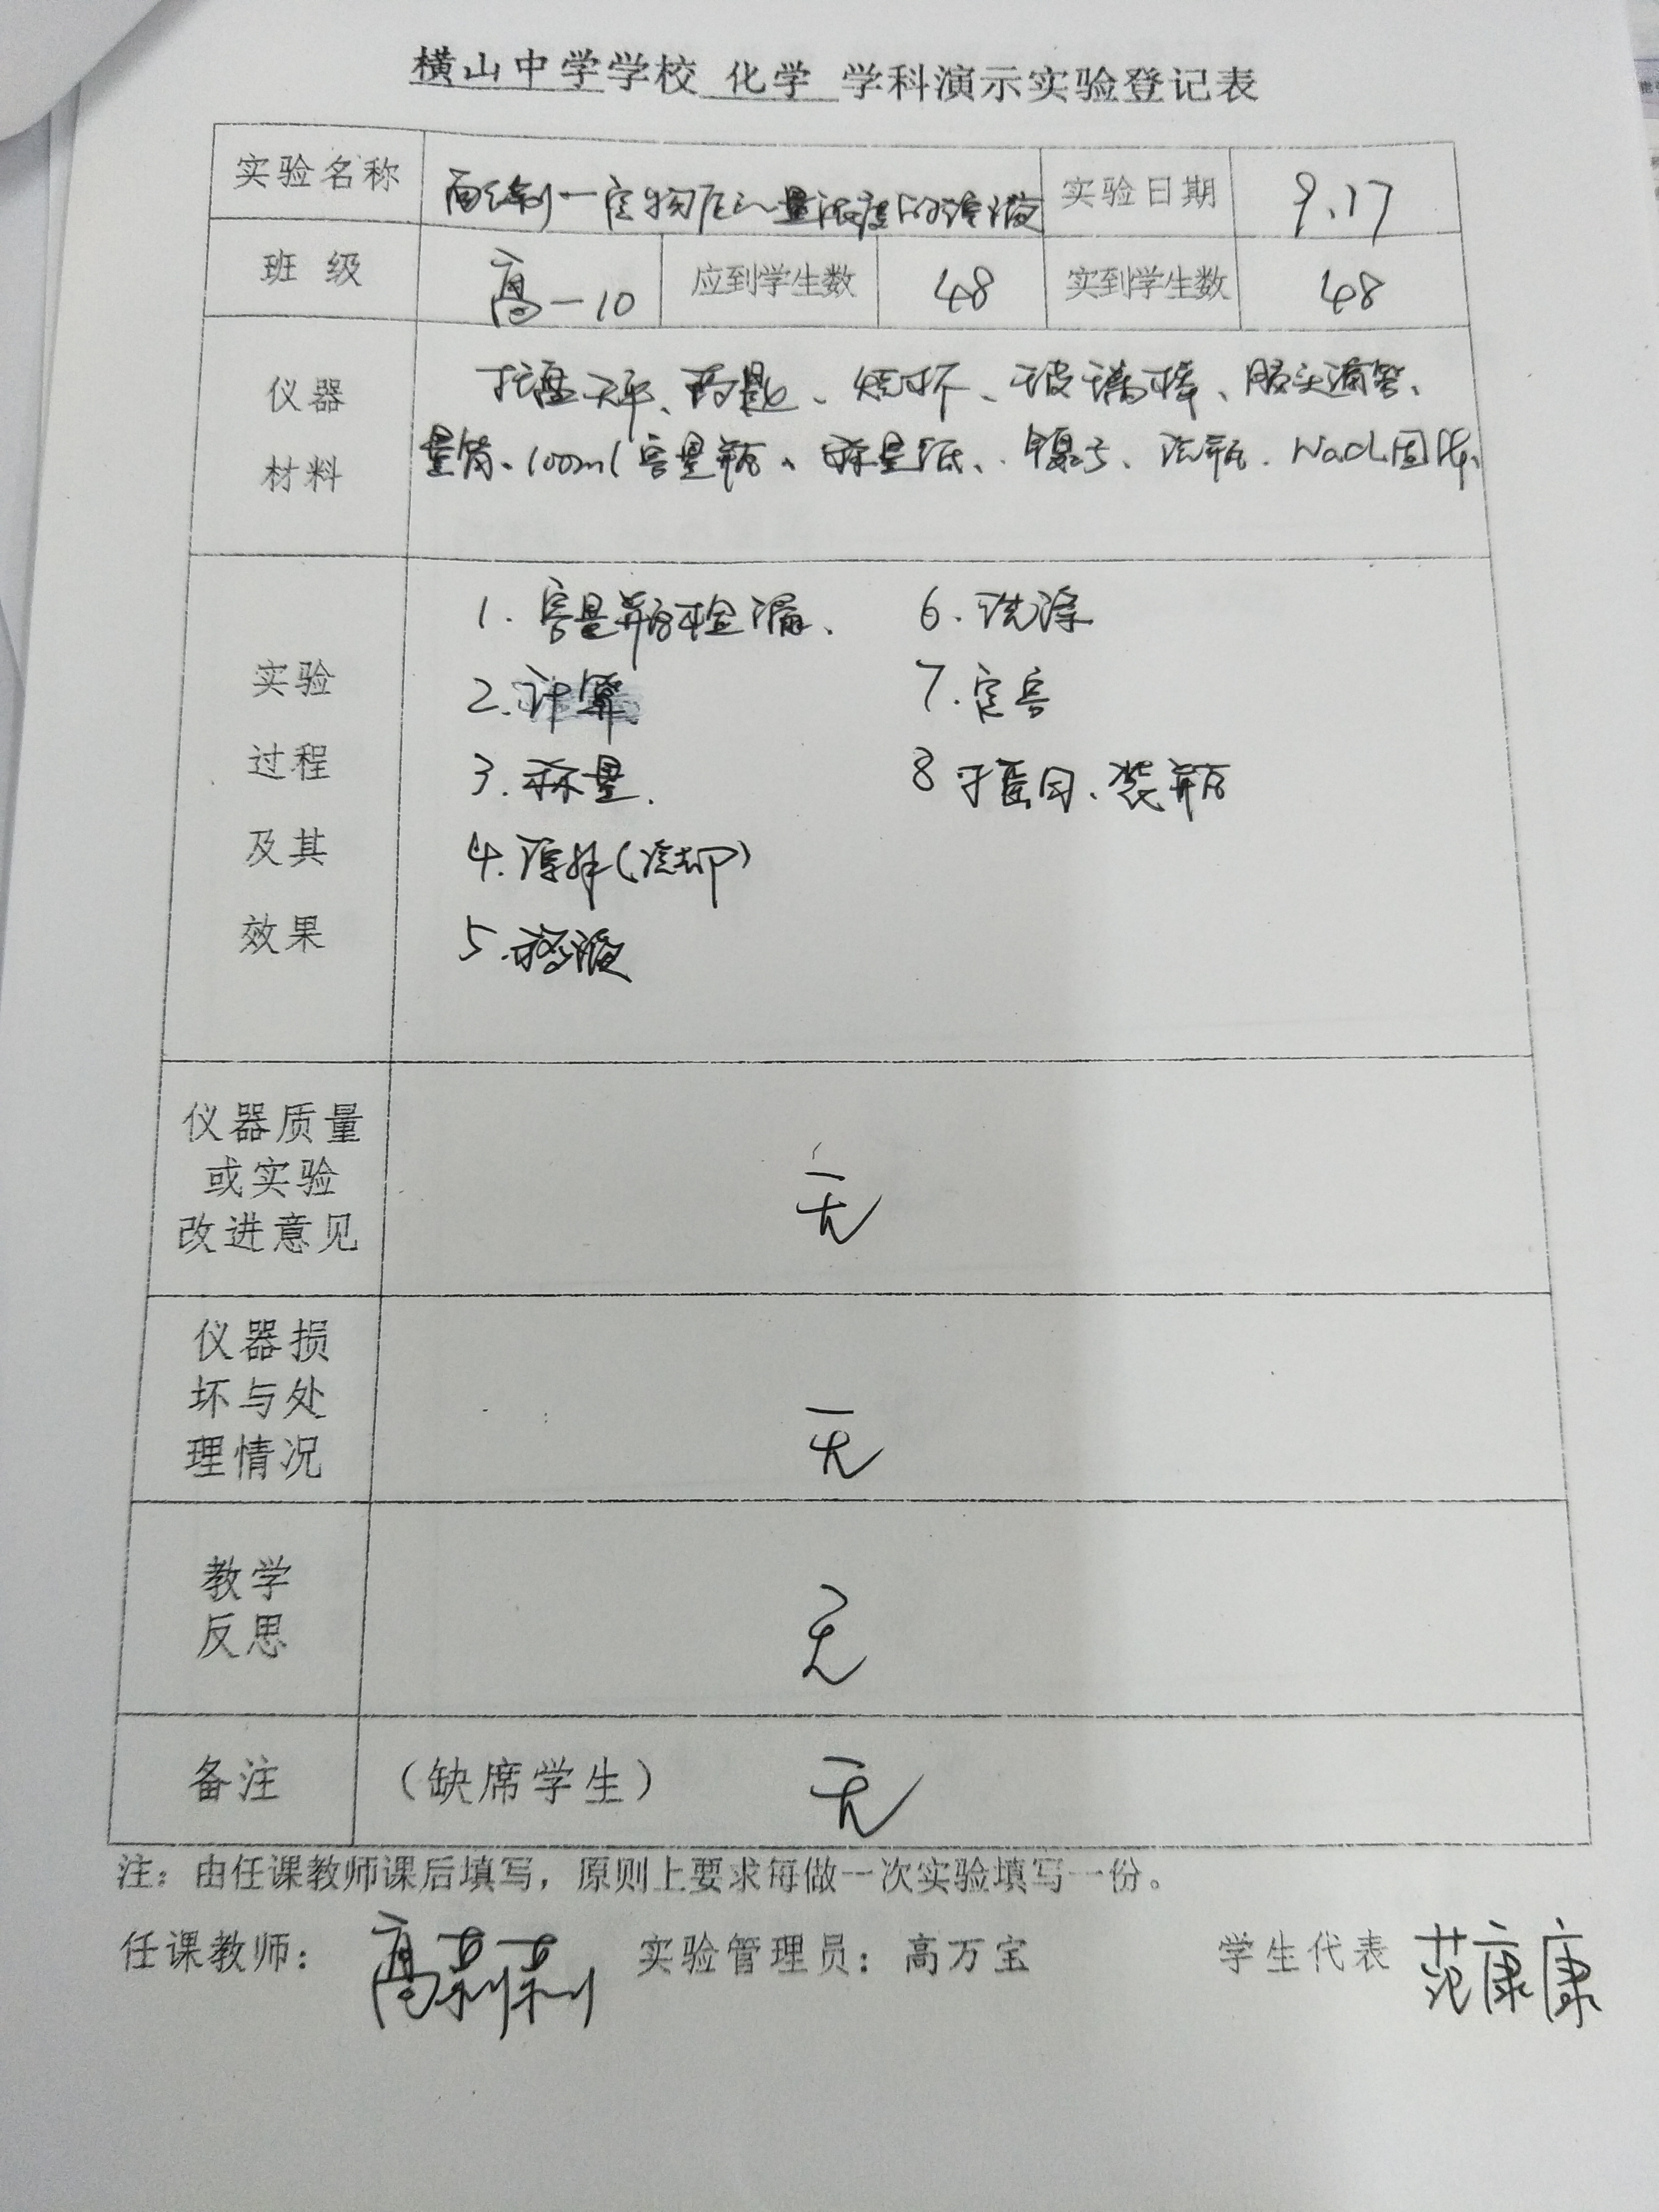 横山中学学校 化学 学科演示实验登记表
实验名称 配制一定物质的量浓度的溶液 实验日期 9.17
班级 高一10 应到学生数 48 实到学生数 48
仪器
材料
托盘天平、药匙、烧杯、玻璃棒、胶头滴管、
量筒、100ml容量瓶、称量纸、镊子、洗瓶、NaCl固体、
实验
过程
及其
效果
1. 容量瓶检漏、
2. 计算
3. 称量.
4. 溶解(冷却)
5. 移液
6. 洗涤
7. 定容
8 摇匀、装瓶
仪器质量
或实验
改进意见
无
仪器损
坏与处
理情况
无
教学
反思
无
备注 （缺席学生） 无
注：由任课教师课后填写，原则上要求每做一次实验填写一份。
任课教师：高莉莉 实验管理员：高万宝 学生代表 范康康